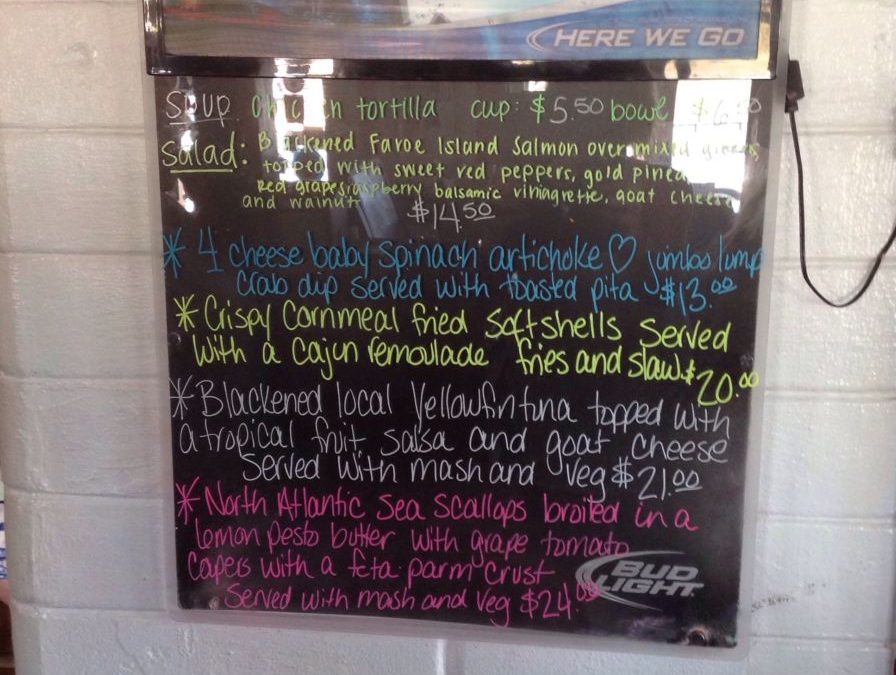 HERE WE GO
Soup. Chicken tortilla cup: $5.50 bowl $6.50
Salad: Blackened Faroe Island Salmon over mixed greens
topped with sweet red peppers, gold
red grapes, raspberry balsamic viniagrette, goat cheese
and walnuts $14.50
* 4 cheese baby spinach artichoke ♡ jumbo lump
crab dip served with toasted pita $13.00
* Crispy Cornmeal fried Softshells Served
with a Cajun remoulade fries and slaw $20.00
* Blackened local Yellowfin tuna topped with
a tropical fruit salsa and goat cheese
Served with mash and veg $21.00
* North Atlantic Sea Scallops broiled in a
lemon pesto butter with grape tomato
Capers with a feta parm crust
Served with mash and veg $24.00
BUD
LIGHT